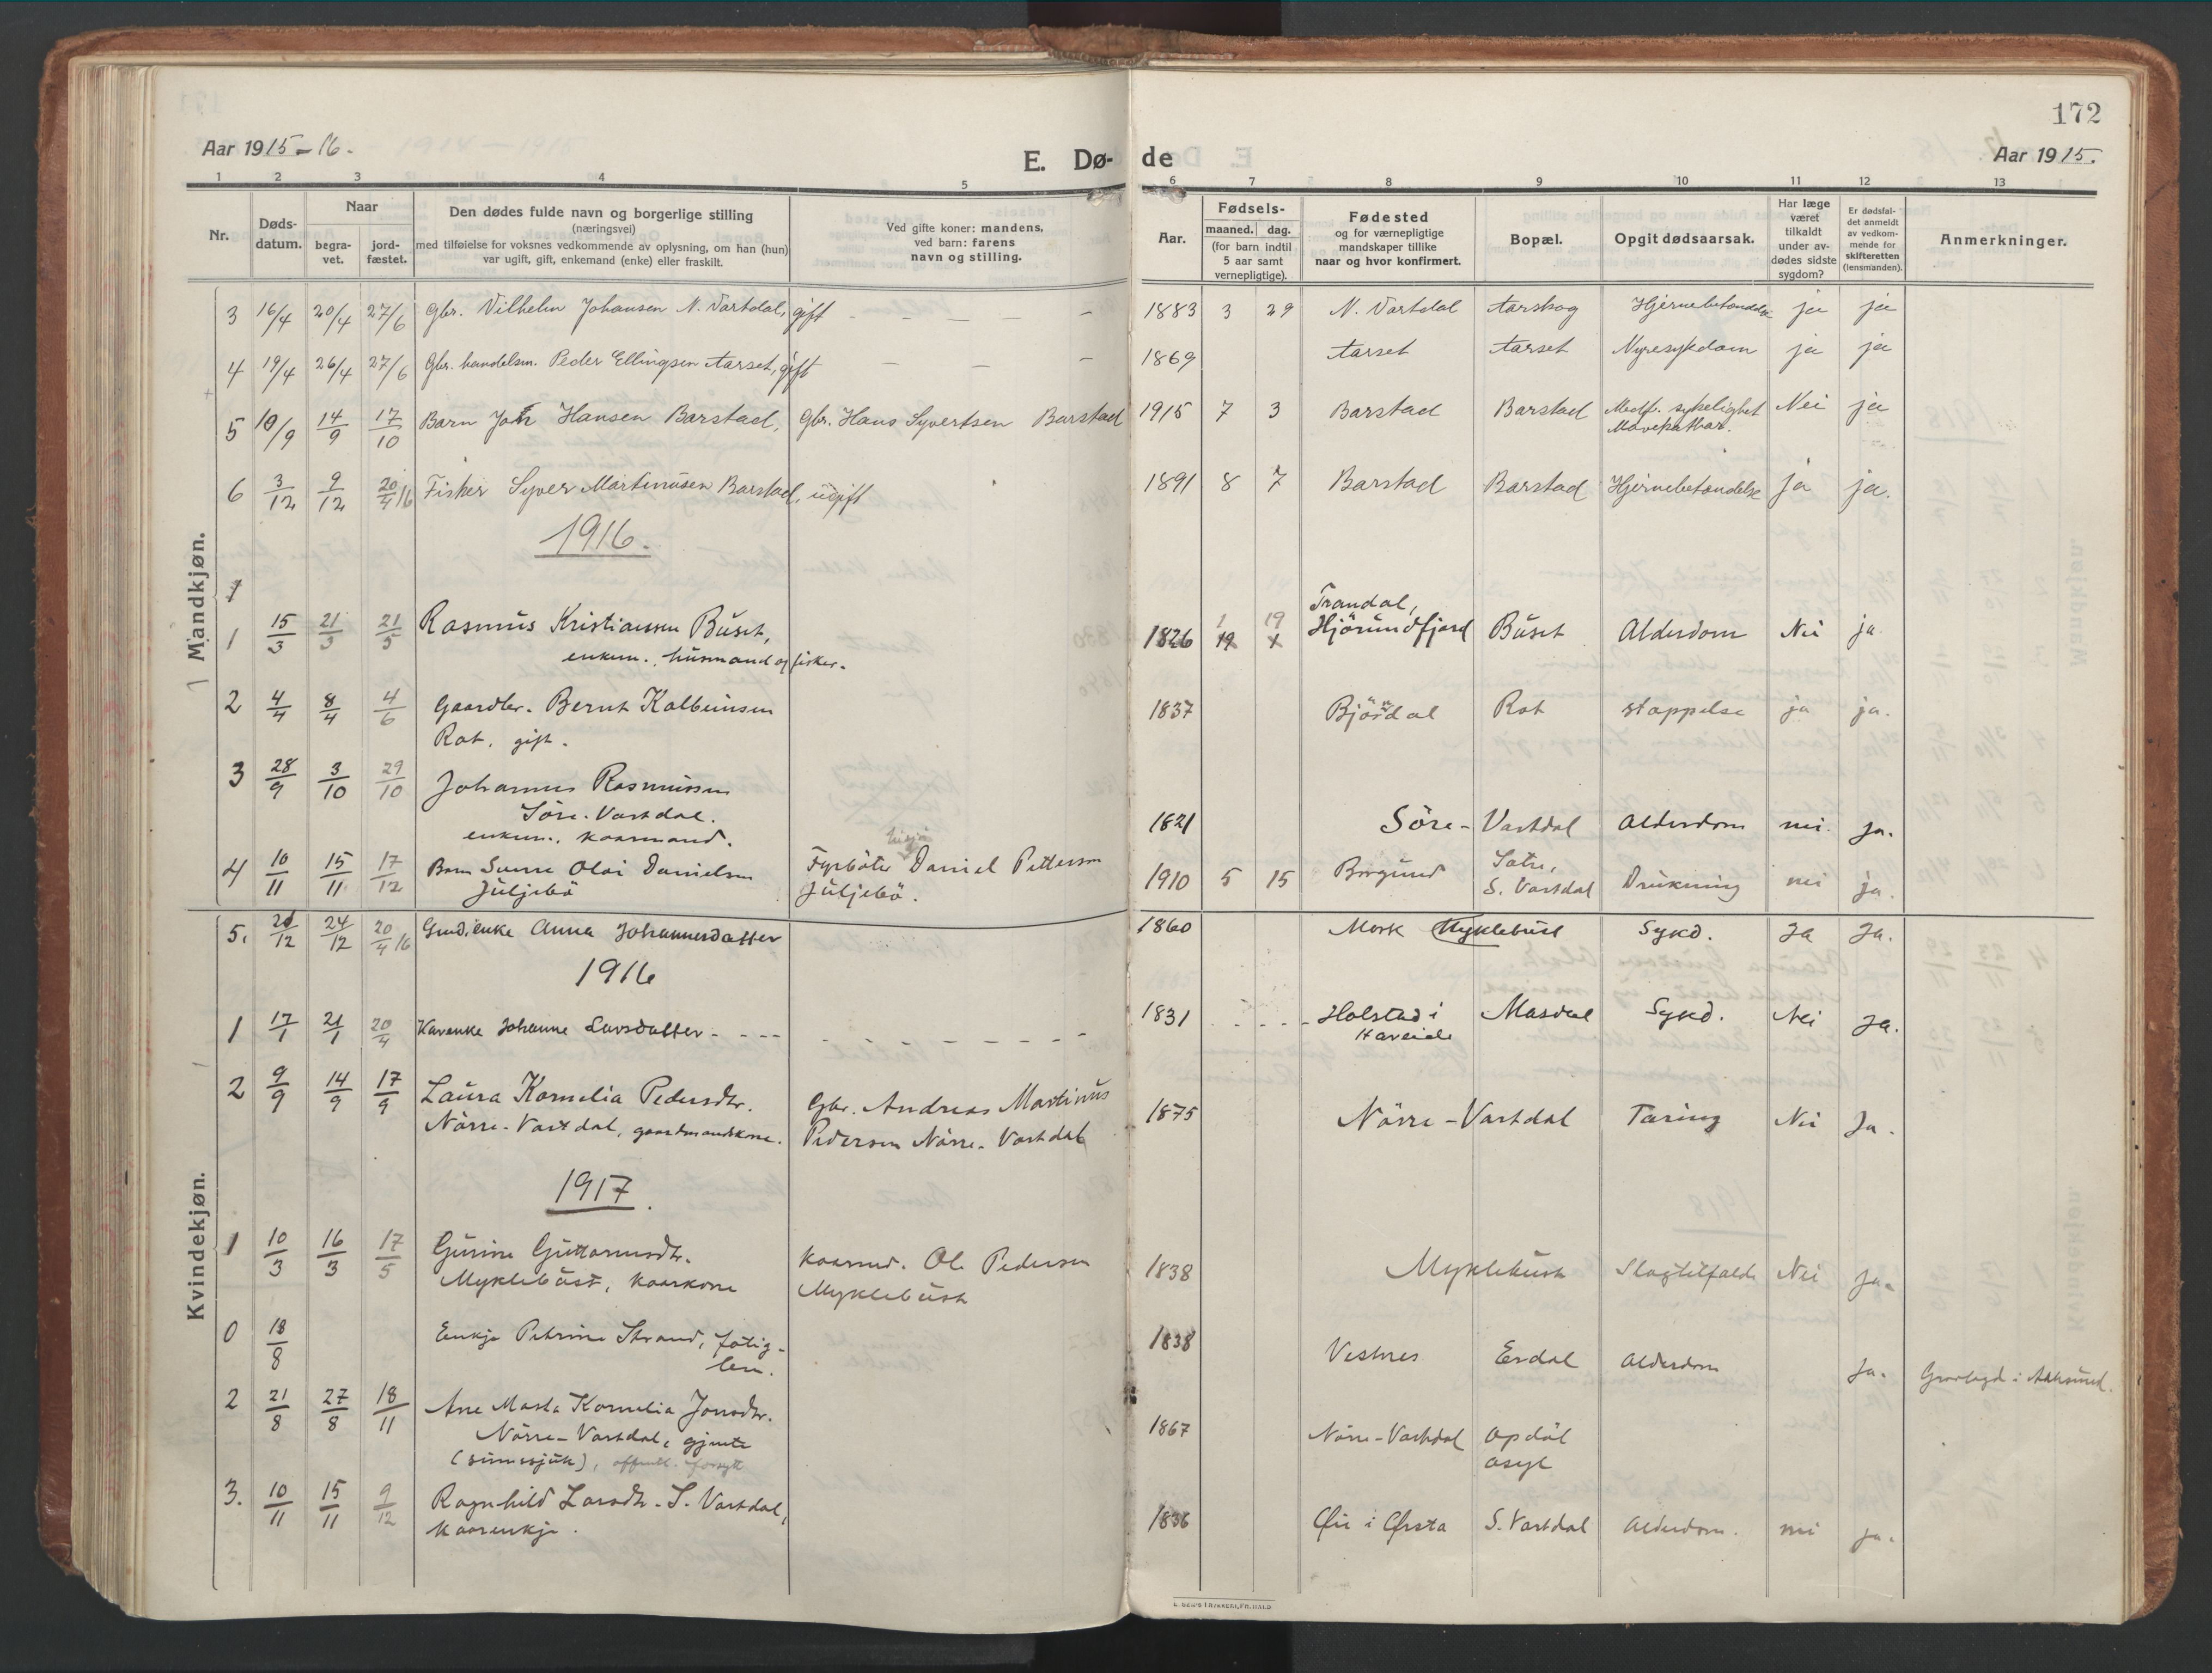 172
Aar 1915-16.
E. Dø-
de
Aar 1915.
1 2 3 4 5 6 7 8 9 10 11 12 13
Nr.
Døds-
datum.
Naar
begra-
vet.
jord-
fæstet.
Den dødes fulde navn og borgerlige stilling
(næringsvei)
med tilføielse for voksnes vedkommende av oplysning, om han (hun)
var ugift, gift, enkemand (enke) eller fraskilt.
Ved gifte koner: mandens,
ved barn: farens
navn og stilling.
Aar.
Fødsels-
maaned. dag.
(for barn indtil
5 aar samt
vernepligtige).
Fødested
og for værnepligtige
mandskaper tillike
naar og hvor konfirmert.
Bopæl.
Opgit dødsaarsak.
Har læge
været
tilkaldt
under av-
dødes sidste
sygdom?
Er dødsfal-
det anmeldt
av vedkom-
mende for
skifteretten
(lensmanden).
Anmerkninger.
Mandkjøn.
3 16/4 20/4 27/6 Gbr. Vilhelm Johansen N. Vartdal, gift - - - - - 1883 3 29 N. Vartdal Aarskog Hjernebetændelse ja ja
4 19/4 26/4 27/6 Gbr. handelsm. Peder Ellingsen Aarset, gift - - - 1869 Aarset Aarset Nyresykdom ja ja
5 10/9 14/9 17/10 Barn Hansen Barstad, Gbr. Hans Syvertsen Barstad 1915 7 3 Barstad Barstad Medf. sykelighet Nei ja
Mavekathar.
6 3/12 9/12 20/4 16 Fisker Syver Martinusen Barstad, ugift 1891 8 7 Barstad Barstad Hjernebetændelse ja ja.
1916.
1
1 15/3 21/3 21/5 Rasmus Kristiansen Buset, 1826 1 19 Trandal,
Hjörundfjord Buset Alderdom Nei ja
enkem., husmand og fisker.
2 4/4 8/4 4/6 Gaardbr. Bernt Kolbeinsen 1837 Björdal Rot stoppelse ja ja.
Rot, gift.
3 28/9 3/10 29/10 Johannes Rasmussen
Söre-Vartdal. 1821 Söre-Vartdal Alderdom nei. ja.
enkem., kaarmand.
4 10/11 15/11 17/12 Barn Olai Danielsen Fyrböter Daniel Pettersen 1910 5 15 Borgund Sætre,
S. Vartdal Drukning nei ja.
Juljebö Juljebö.
Kvindekjøn.
5. 20/12 24/12 20/4 16 Grdr.enke Anna Johannesdatter 1860 Mork Myklebust Sykd. Ja Ja.
1916
1 17/1 21/1 20/4 Kaarenke Johanne Larsdatter - - - - 1831 - - - - Holstad i
Hareide Masdal Sykd. Nei Ja.
2 9/9 14/9 17/9 Laura Kornelia Pedersdtr. Gbr. Andreas Martinus 1875 Nörre-Vartdal Tæring Nei Ja.
Nörre-Vartdal, gaardmandskone. Pedersen Nörre-Vartdal
1917.
1 10/3 16/3 17/5 Gurine Guttormsdtr. Kaarmd. Ole Pedersen 1838 Myklebust Slagtilfælde Nei Ja.
Myklebust, kaarkone Myklebust
0 18/8 Enkje Petrine Strand, fatig-
lem. 1838 Vestnes Erdal Alderdom Ja. Gravlagd i Aalesund.
2 21/8 27/8 18/11 Ane Marta Kornelia Jonsdtr. 1867 Nörre-Vartdal Opdöl
asyl
Nörre-Vartdal, gjente
(sinnssjuk), offentl. forsytt
3. 10/11 15/11 9/12 Ragnhild Larsdtr. S. Vartdal, 1836 Øie i Ørsta S. Vartdal Alderdom. nei ja.
kaarenkje.